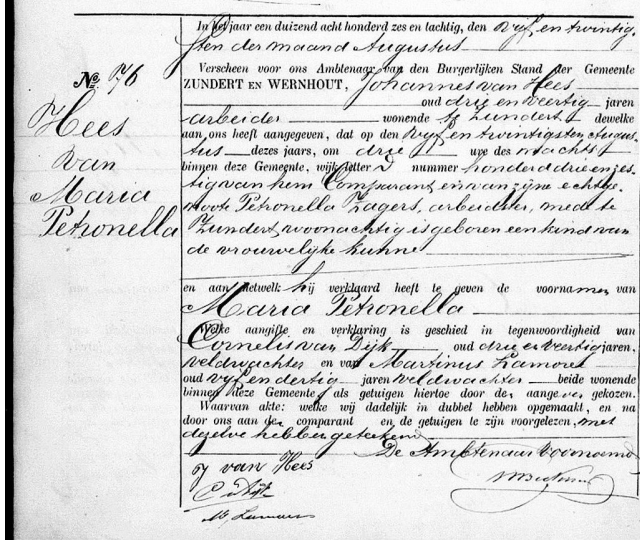 In het jaar een duizend acht honderd zes en tachtig, den vijf en twintig-
sten der maand Augustus
No. 76
Verscheen voor ons Ambtenaar van den Burgerlijken Stand der Gemeente
ZUNDERT EN WERNHOUT, Johannes van Hees
oud drie en veertig jaren
Hees
van
Maria
Petronella
arbeider wonende te Zundert dewelke
aan ons heeft aangegeven, dat op den vijf en twintigsten Augus-
tus dezes jaars, om drie ure des nachts
binnen deze Gemeente, wijk letter D nummer honderd drie en zes-
tig van hem Comparant en van zijne echtge-
noote Petronella Zagers, arbeidster, mede te
Zundert woonachtig is geboren een kind van
de vrouwelijke kunne
en aan hetwelk hij verklaard heeft te geven de voornamen van
Maria Petronella
Welke aangifte en verklaring is geschied in tegenwoordigheid van
Cornelis van Dijk oud drie en veertig jaren,
veldwachter en van Martinus Lamoré
oud vijf en dertig jaren veldwachter beide wonende
binnen deze Gemeente, als getuigen hiertoe door den aangever gekozen.
Waarvan akte: welke wij dadelijk in dubbel hebben opgemaakt, en na
door ons aan de comparant en de getuigen te zijn voorgelezen, met
dezelve hebben geteekend
De Ambtenaar voornoemd
J van Hees
C v Dijk